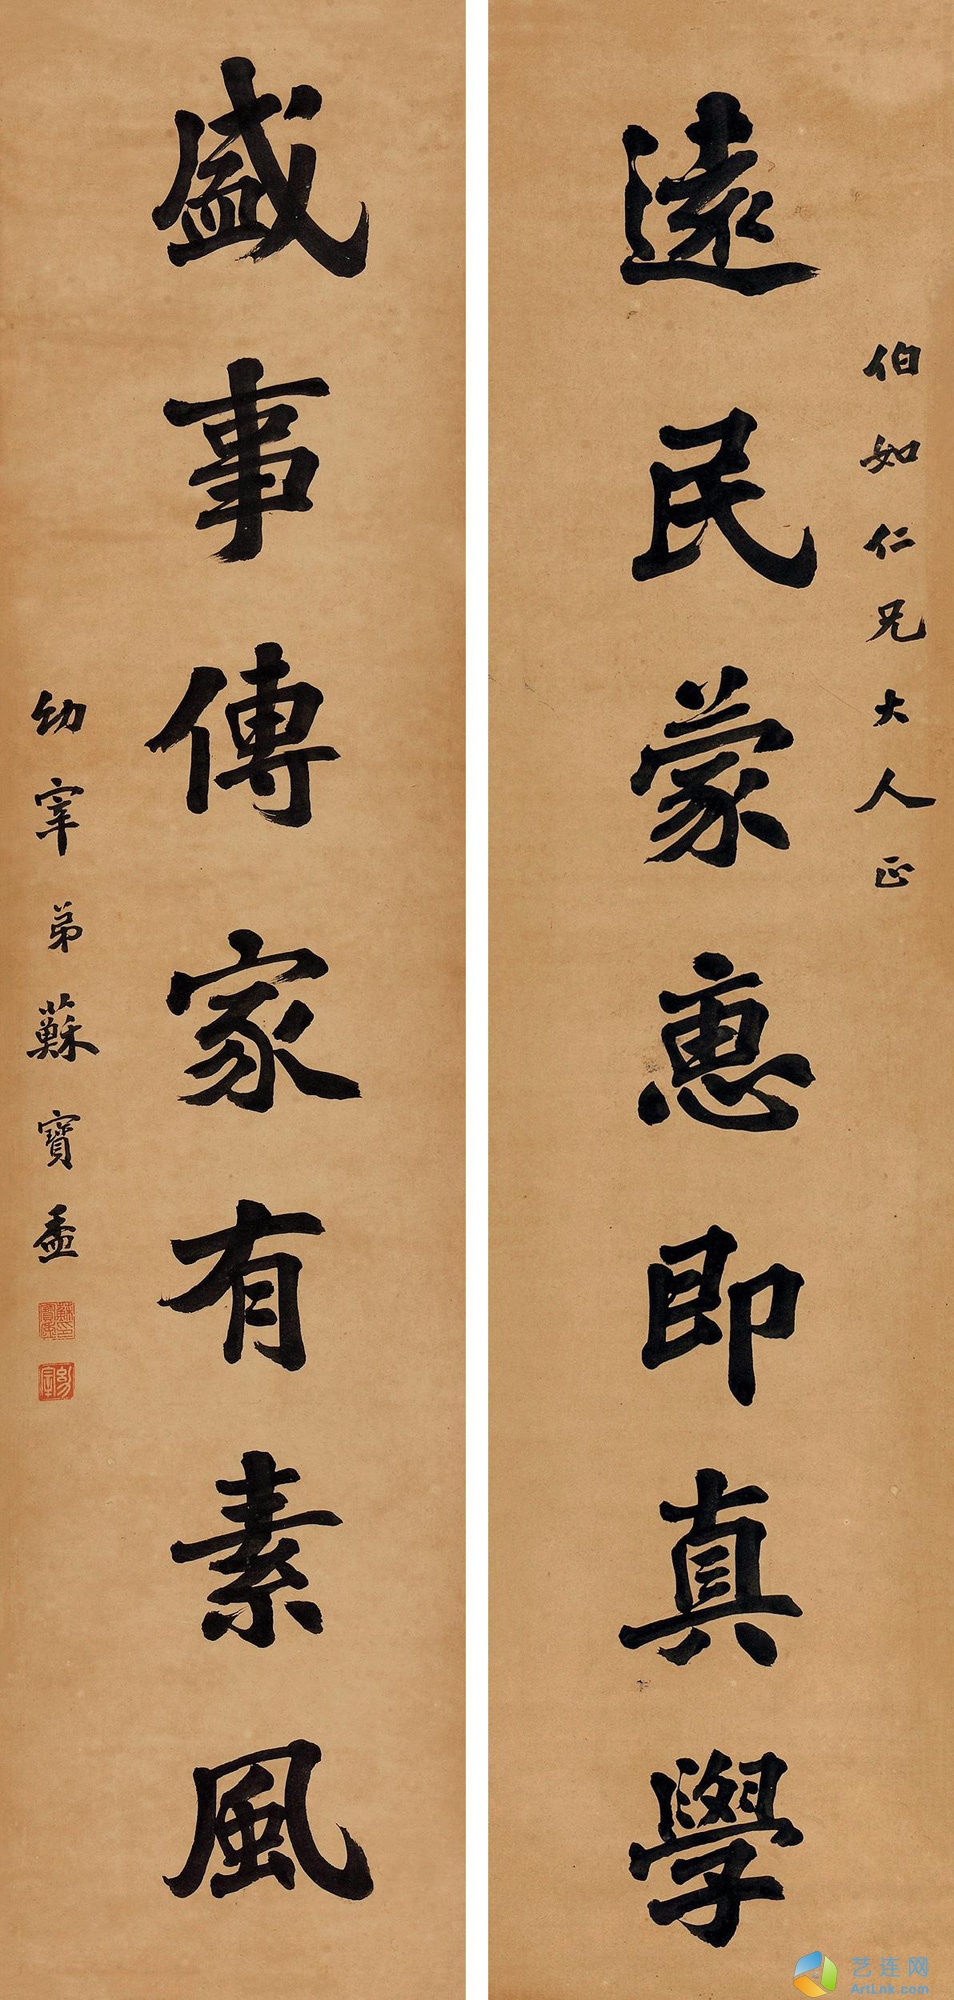 伯如仁兄大人正
遠民蒙惠即真學
盛事傳家有素風
幼宰弟蘇寶盉
幼宰
艺连网
ArtLnk.com